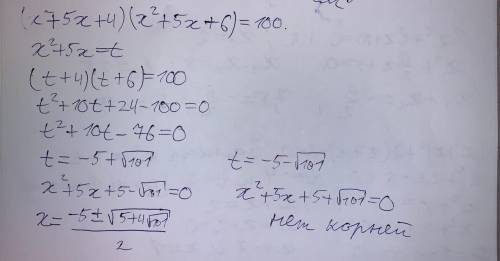 (x²+5x+4)(x²+5x+6)=100.
x²+5x=t
(t+4)(t+6)=100
t²+10t+24-100=0
t²+10t-76=0
t=-5+√101 t=-5-√101
x²+5x+5-√101=0 x²+5x+5+√101=0
x=(-5±√(5+4√101))/2 нет корней